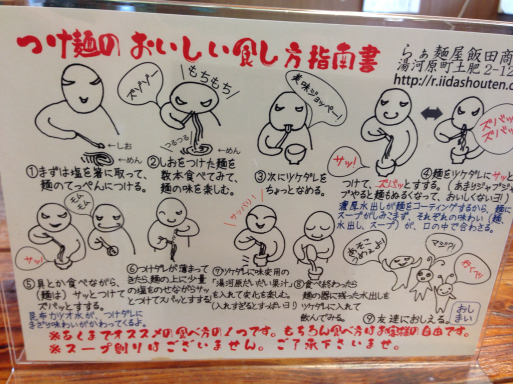 つけ麺のおいしい食し方指南書
らぁ麺屋飯田商
湯河原町土肥2-12
http://r.iidashouten.c
ズゾゾー
もちもち
美味ジョッペー!
サッ!
ズバッ
ズバッ
しお
めん
つるつる
めん
①まずは塩を箸に取って、
麺のてっぺんにつける。
②しおをつけた麺を
数本食べてみて、
麺の味を楽しむ。
③次にツケダレを
ちょっとなめる。
④麺をツケダレにサッと
つけて、ズバッとすする。(あまりジャブジャ
ブやると麺もぬるくなって、おいしくないヨ!)
濃厚水出しが麺をコーティングするから、麺に
スープがしみこまず、それぞれの味わい(麺、
水出し、スープ)が、口の中で合わさる。
モムモム
サッ!
サッパリ!
あそこ
めえよ!
マジッ!
おしまい
⑤具とか食べながら、
(麺は)サッとつけて
ズバッとすする。
昆布カツオ水が、つけダレに
まざり味わいがかわってくるよ。
⑥つけダレが薄まって
きたら、麺の上に少量
の塩をのせながらサッ
とつけてスパッとすする。
⑦ツケダレに味変用の
「湯河原だいだい果汁」
を入れて変化を楽む。
(入れすぎるとすっぱいヨ!)
⑧食べ終わったら
麺の器に残った水出しを
ツケダレに入れて
飲んでみる。
⑨友達におしえる。
※あくまでオススメの食べ方の1つです。もちろん食べ方はお客様の自由です。
※スープ割りはございません。ご了承下さいませ。